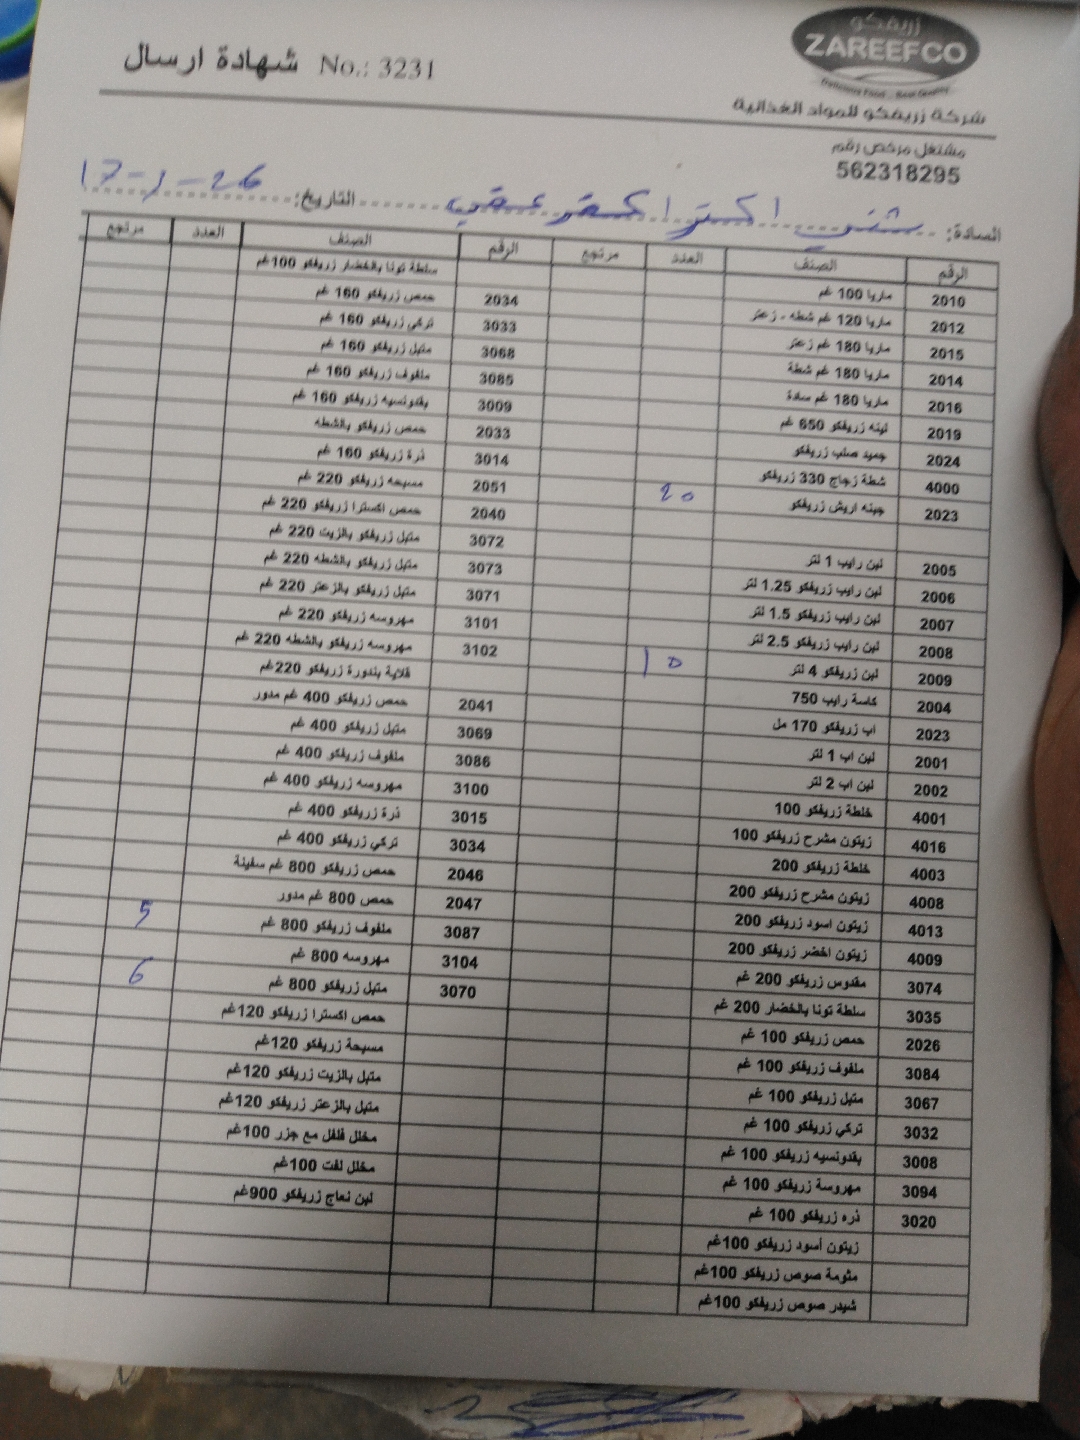 زريفكو
ZAREEFCO
Delicious Food .. Best Quality
شهادة ارسال No.: 3231
شركة زريفكو للمواد الغذائية
مشتغل مرخص رقم
562318295
السادة: اكسترا التاريخ: 17-1-26
الرقم الصنف العدد مرتجع الرقم الصنف العدد مرتجع
سلطة تونا بالخضار زريفكو 100غم
2010 ماريا 100 غم 2034 حمص زريفكو 160 غم
2012 ماريا 120 غم شطه - زعتر 3033 تركي زريفكو 160 غم
2015 ماريا 180 غم زعتر 3068 متبل زريفكو 160 غم
2014 ماريا 180 غم شطة 3085 ملفوف زريفكو 160 غم
2016 ماريا 180 غم سادة 3009 بقدونسيه زريفكو 160 غم
2019 لبنه زريفكو 650 غم 2033 حمص زريفكو بالشطه
2024 جميد صلب زريفكو 3014 ذرة زريفكو 160 غم
4000 شطة زجاج 330 زريفكو 2051 مسبحه زريفكو 220 غم
2023 جبنه اريش زريفكو 20 2040 حمص اكسترا زريفكو 220 غم
3072 متبل زريفكو بالزيت 220 غم
2005 لبن رايب 1 لتر 3073 متبل زريفكو بالشطه 220 غم
2006 لبن رايب زريفكو 1.25 لتر 3071 متبل زريفكو بالزعتر 220 غم
2007 لبن رايب زريفكو 1.5 لتر 3101 مهروسه زريفكو 220 غم
2008 لبن رايب زريفكو 2.5 لتر 3102 مهروسه زريفكو بالشطه 220 غم
2009 لبن زريفكو 4 لتر 10 قلاية بندورة زريفكو 220غم
2004 كاسة رايب 750 2041 حمص زريفكو 400 غم مدور
2023 اب زريفكو 170 مل 3069 متبل زريفكو 400 غم
2001 لبن اب 1 لتر 3086 ملفوف زريفكو 400 غم
2002 لبن اب 2 لتر 3100 مهروسه زريفكو 400 غم
4001 خلطة زريفكو 100 3015 ذرة زريفكو 400 غم
4016 زيتون مشرح زريفكو 100 3034 تركي زريفكو 400 غم
4003 خلطة زريفكو 200 2046 حمص زريفكو 800 غم سفينة
4008 زيتون مشرح زريفكو 200 2047 حمص 800 غم مدور
4013 زيتون اسود زريفكو 200 3087 ملفوف زريفكو 800 غم 5
4009 زيتون اخضر زريفكو 200 3104 مهروسه 800 غم
3074 مقدوس زريفكو 200 غم 3070 متبل زريفكو 800 غم 6
3035 سلطة تونا بالخضار 200 غم حمص اكسترا زريفكو 120غم
2026 حمص زريفكو 100 غم مسبحة زريفكو 120غم
3084 ملفوف زريفكو 100 غم متبل بالزيت زريفكو 120غم
3067 متبل زريفكو 100 غم متبل بالزعتر زريفكو 120غم
3032 تركي زريفكو 100 غم مخلل فلفل مع جزر 100غم
3008 بقدونسيه زريفكو 100 غم مخلل لفت 100غم
3094 مهروسة زريفكو 100 غم لبن نعاج زريفكو 900غم
3020 ذره زريفكو 100 غم
زيتون أسود زريفكو 100غم
مثومة صوص زريفكو 100غم
شيدر صوص زريفكو 100غم